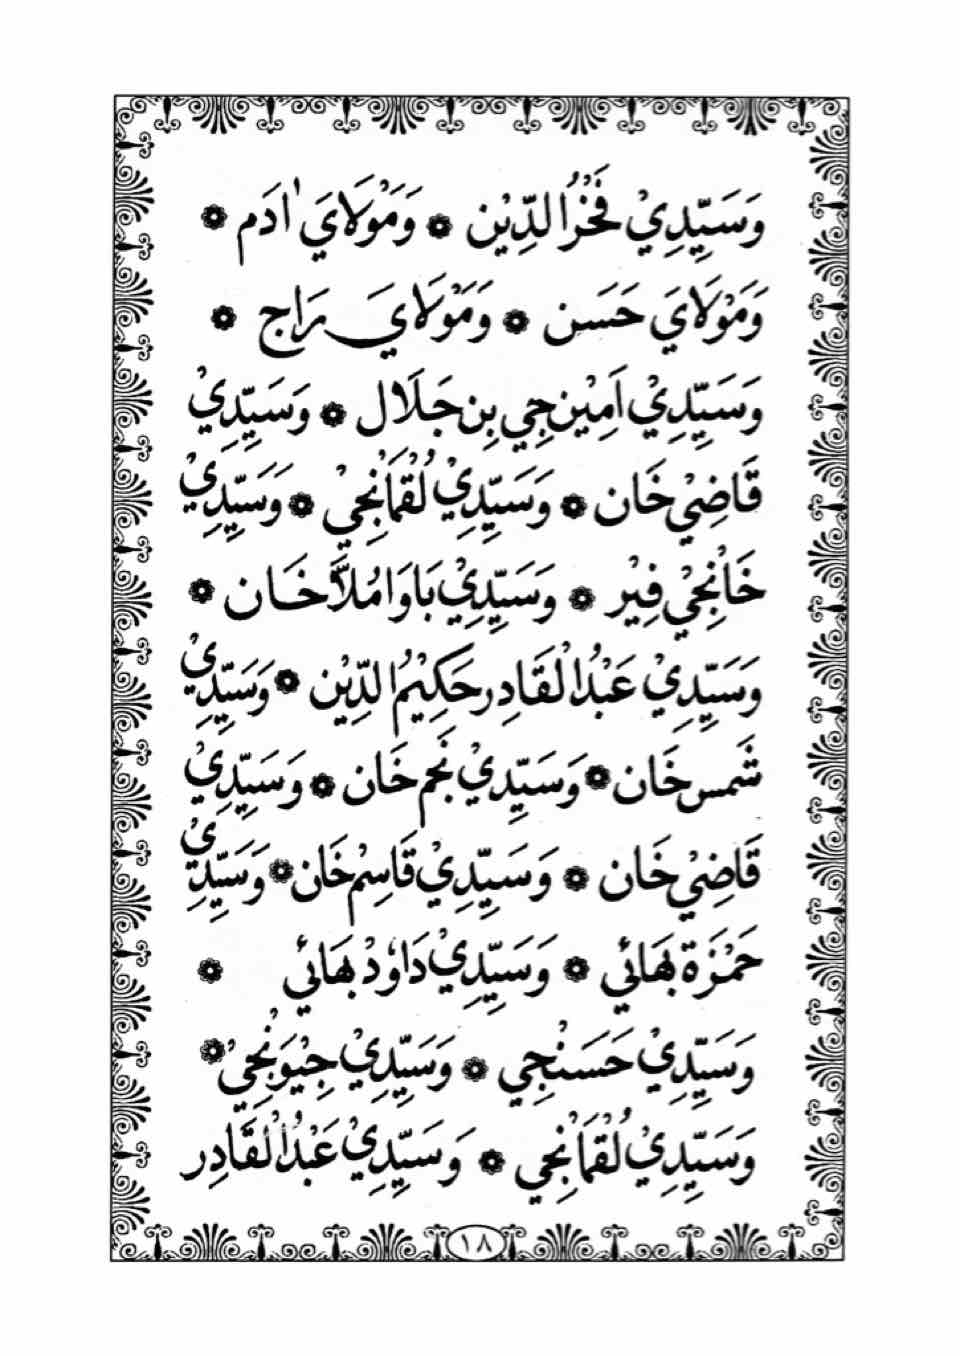 وَسَيِّدِيْ فَخْرُ الدِّيْن ۞ وَمَوْلَايَ اٰدَم ۞
وَمَوْلَايَ حَسَن ۞ وَمَوْلَايَ رَاج ۞
وَسَيِّدِيْ اَمِيْن جِي بِن جَلَال ۞ وَسَيِّدِيْ
قَاضِيْ خَان ۞ وَسَيِّدِيْ لُقْمَانْجِيْ ۞ وَسَيِّدِيْ
خَانْجِيْ فِيْر ۞ وَسَيِّدِيْ بَاوَا مُلَّا خَان ۞
وَسَيِّدِيْ عَبْدُ الْقَادِر حَكِيْمُ الدِّيْن ۞ وَسَيِّدِيْ
شَمس خَان ۞ وَسَيِّدِيْ نَجم خَان ۞ وَسَيِّدِيْ
قَاضِيْ خَان ۞ وَسَيِّدِيْ قَاسِمْ خَان ۞ وَسَيِّدِيْ
حَمْزَة بَهَائي ۞ وَسَيِّدِيْ دَاوُدْ بَهَائي ۞
وَسَيِّدِيْ حَسَنْجِي ۞ وَسَيِّدِيْ جِيْوَنْجِيْ ۞
وَسَيِّدِيْ لُقْمَانْجِي ۞ وَسَيِّدِيْ عَبْدُ الْقَادِر
١٨